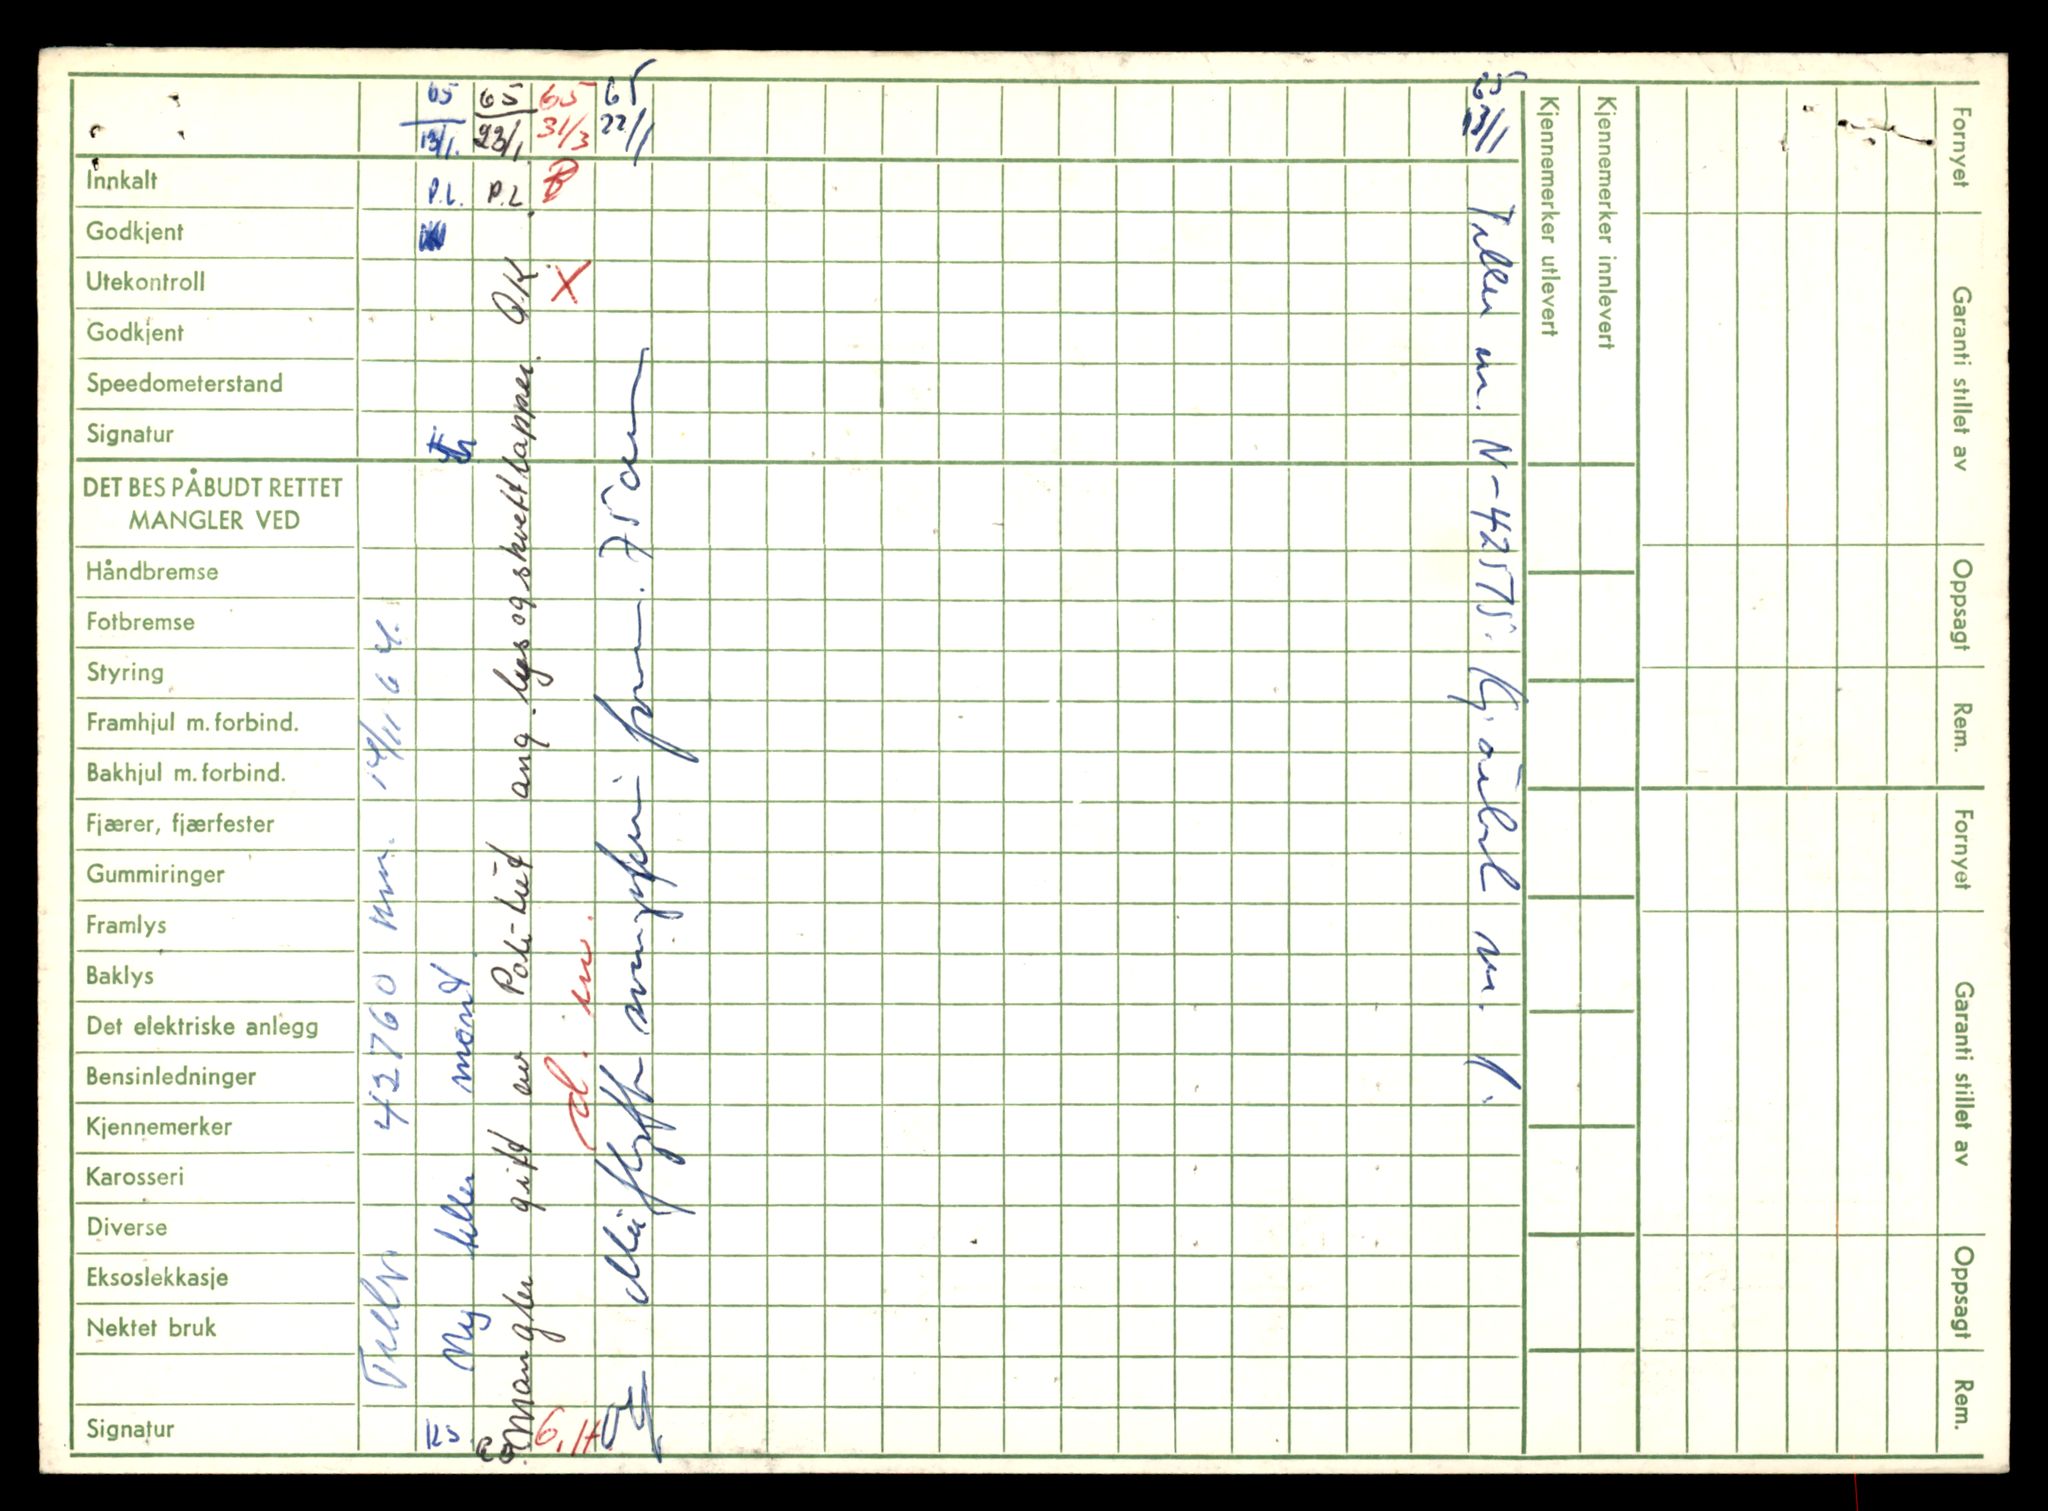 65 65 65 65
13/1. 23/1 31/3 22/1
Innkalt P.L. P.L.
Godkjent
Utekontroll X
Godkjent
Speedometerstand
Signatur
DET BES PÅBUDT RETTET
MANGLER VED
Håndbremse
Fotbremse
Styring
Framhjul m. forbind.
Bakhjul m. forbind.
Fjærer, fjærfester
Gummiringer
Framlys
Baklys
Det elektriske anlegg
Bensinledninger
Kjennemerker
Karosseri
Diverse
Eksoslekkasje
Nektet bruk
Signatur KS. G.H
42760 km. 14/11 64.
Ny teller mont
Mangler gitt av Politiet ang. lys og skvettlapper. O.K
75 cm
13/1 Teller nr. N-42575. Kjørt
Kjennemerker utlevert
Kjennemerker innlevert
Fornyet Garanti stillet av Oppsagt Rem. Fornyet Garanti stillet av Oppsagt Rem.